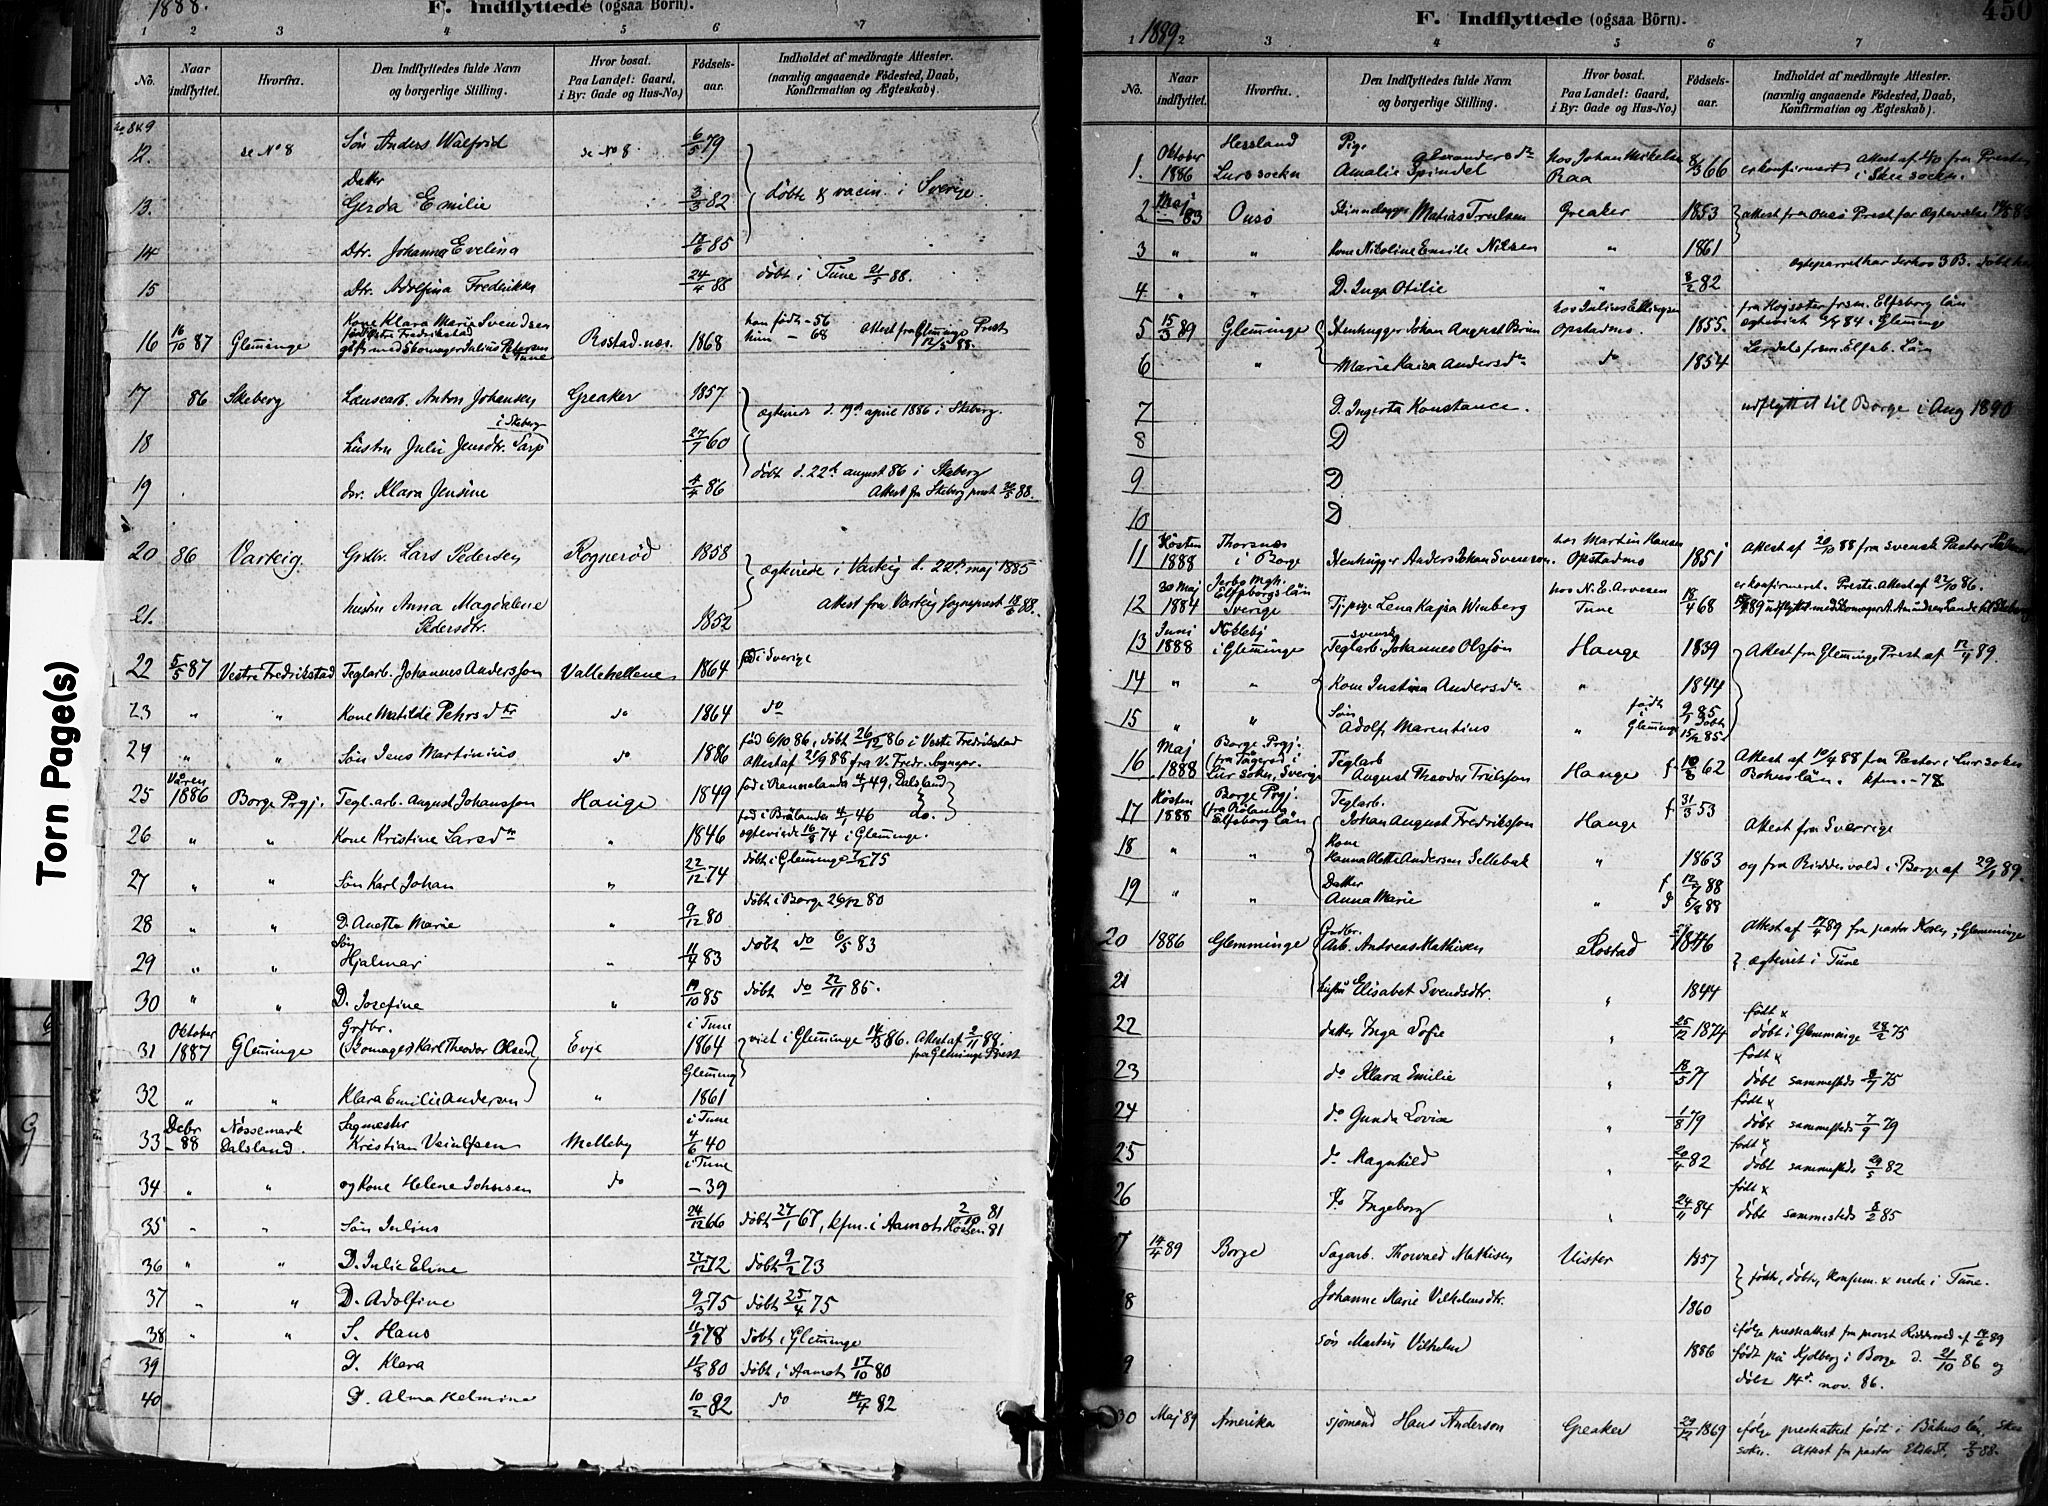 1888.
F. Indflyttede (ogsaa Börn).
1 2 3 4 5 6 7
No.
Naar indflyttet.
Hvorfra.
Den Indflyttedes fulde Navn og borgerlige Stilling.
Hvor bosat. Paa Landet: Gaard, i By: Gade og Hus-No.)
Födselsaar.
Indholdet af medbragte Attester. (navnlig angaaende Födested, Daab, Konfirmation og Ægteskab).
12. se No 8 Søn Anders Walfrid se No 8 6/5 79
13. Datter Gerda Emilie 3/3 82 døbte & vacin. i Sverige.
14 Dtr. Johanna Evelina 18/6 85
15 Dtr. Adolfina Fredrikka 24/4 88 døbt i Tune 21/5 88.
16 16/10 87 Glemminge Kone Klara Marie Svendsen
gift med Skomager Julius Petersen Tune Rostad-næs. 1868
han født -56
hun - 68 Attest fra Glemminge Prest 12/5 88.
17 86 Skeberg Anton Johansen Greaker 1857
ægteviede d. 19d april 1886 i Skeberg.
18 hustru Julie Jensdtr. Sarp i Skeberg 27/7 60
19 dtr. Klara Jensine 4/4 86 døbt d. 22de august 86 i Skeberg
Attest fra Skeberg prest 30/5 88.
20 86 Varteig. Grdbr. Lars Pedersen Rognerød 1858
ægteviede i Varteig d. 22de maj 1885
21. hustru Anna Magdalene Pedersdtr. 1852
Attest fra Varteig sogneprest 18/6 88.
22 5/5 87 Vestre Fredrikstad Teglarb. Johannes Andersson Vallehellene 1864 fød i Sverige
23 " " Kone Matilde Pehrsdtr do 1864 do
24 " " Søn Jens Martinius do 1886 fød 6/10 86, døbt 26/12 86 i Vestre Fredrikstad
Attest af 21/9 88 fra V. Fredr. Sognepr.
25 Våren 1886 Borge Prgj. Tegl.arb. August Johansson Hauge 1849 fød i Rannelanda 4/1 49, Dalsland
26 " " Kone Kristine Larsdtr " 1846 fød i Brålanda 4/1 46 do.
ægteviede 16/8 74 i Glemminge.
27 " " Søn Karl Johan " 22/12 74 døbt i Glemminge 7/2 75
28 " " D. Anetta Marie " 9/12 80 døbt i Borge 26/12 80
29 " " Søn Hjalmar " 11/4 83 døbt do 6/5 83
30 " " D. Josefine " 19/10 85 døbt do 22/11 85.
31 Oktober 1887 Glemminge Grdbr. (Skomager) Karl Theodor Olsen Evje i Tune 1864
viet i Glemminge 14/3 86. Attest af 2/11 88. fra Glemminge Prest
32 " " Klara Emilie Andersen " Glemming 1861
33 Debr -88 Nøssemark Dalsland. Sagmester Kristian Melleby i Tune 4/6 40
34 " " og Kone Helene Johnsen do i Tune -39
35 " " Søn Julius 24/12 66 døbt 27/1 67, kfm. i Aamot Høsten 81
36 " " D. Julie Eline 27/12 72 døbt 9/2 73
37 " " D. Adolfine 9/3 75 døbt 25/4 75
38 " " S. Hans 11/2 78 døbt i Glemminge
39 D. Klara 11/8 80 døbt i Aamot 17/10 80
40 D. Alma Helmine 10/2 82 do 14/4 82
1889
F. Indflyttede (ogsaa Börn).
450
1 2 3 4 5 6 7
No.
Naar indflyttet.
Hvorfra.
Den Indflyttedes fulde Navn og borgerlige Stilling.
Hvor bosat. Paa Landet: Gaard, i By: Gade og Hus-No.)
Födselsaar.
Indholdet af medbragte Attester. (navnlig angaaende Födested, Daab, Konfirmation og Ægteskab).
1. Oktober 1886 Hessland Lurs sockn Pige Amalie Alexandersdtr Spindel hos Johan Mikelsen Raa 8/3 66
er konfirmert Attest af fra Presten i Skee sockn.
2 Maj 83 Onsø Matias Trulsen Greaker 1853 attest fra Onsø Prest for Ægtevielse
3 " " Kone Nikoline Emilie Nilsen " 1861
ægteparret har derhos 3 B. døbt her
4 " " D. Inga Otilie 8/2 82
5 15/3 89 Glemminge Stenhugger Johan August Brun hos Julius Ellingsen Opstadmo. 1855.
ægteviet 84 i Glemminge
6 " Marie Kaisa Andersdtr do 1854
7 D. Ingerta Konstance. udflyttet til Borge i Aug 1890
8 D
9 D
10 D
11 Høsten 1888 Thorsnæs i Borge Stenhugger Anders Johan Svenson. hos Martin Hansen Opstadmo 1851
Attest af 20/10 88 fra svensk Pastor
12 30 Maj 1884 Elfsborgs län Sverige Tj.pige Lena Kajsa Winberg hos N. E. Arvesen Tune 18/4 68
er konfirmert. Preste-Attest af 22/10 86.
13 Juni 1888 Nøkleby i Glemminge svensk Teglarb. Johannes Olsson Hauge 1839 Attest fra Glemminge Prest af 12/4 89.
14 " " Kone Justina Andersdtr " 1844
15 " " Søn Adolf Marentius " født i Glemminge 9/1 85 døbt 15/2 85
16 Maj 1888 Borge Prgj. (fra Tågeröd i Lur sokn, Sverige Teglarb August Theodor Trulsson Hauge f. 10/3 62
Attest af 10/4 88 fra Pastor i Lur sokn Bohuslän. kfm. -78
17 Høsten 1888 Borge Prgj. Elfsborg län Teglarb. Johan August Fredriksson Hauge f 31/3 53
Attest fra Sverrige
18 " " Kone Hanna Olette Andersen Sellebak " 1863 og fra Riddervold i Borge af 29/1 89.
19 " " Datter Anna Marie " f 12/7 88 d 6/8 88
20 1886 Glemminge Grdbr. Arb. Andreas Mathisen Rostad 1846
Attest af 17/4 89 fra pastor Koren, Glemminge
ægteviet i Tune
21 hustru Elisabet Svendsdtr. " 1844
22 datter Inga Sofie " 25/12 1874 født & døbt i Glemminge 28/2 75
23 do Klara Emilie " 18/5 77 født & døbt sammesteds 8/7 75
24 do Gunda Lovise " 1/8 79 født & døbt sammesteds 7/9 79
25 do Magnhild " 20/4 82 født & døbt sammesteds 29/5 82
26 Do Ingeborg " 24/11 84 født & døbt sammesteds 8/2 85
7 14/4 89 Borge Sagarb. Thorvald Mathisen Vister 1857
født, døbt, konfirm. & viede i Tune.
8 Johanne Marie Vilhelmsdtr. 1860
9 søn Martin Vilhelm 1886
ifølge prestattest fra provst Riddervold af 14/6 89
født på Kjølberg i Borge d. 21/10 86 og
døbt 14d nov. 86.
30 Maj 89 Amerika sjömand Hans Anderson Greaker 29/12 1869
ifølge prestattest født i Båhus län, Skee
sokn. Attest fra pastor Elstedt, 3/5 88.
Torn Page(s)